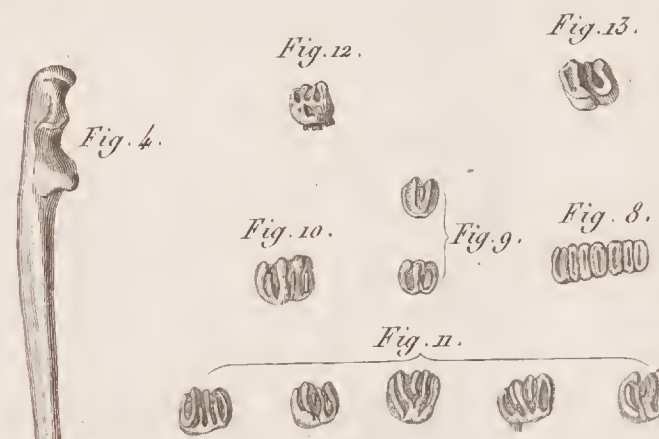 Fig. 12.
Fig. 13.
Fig. 4.
Fig. 10.
Fig. 9.
Fig. 8.
Fig. 11.